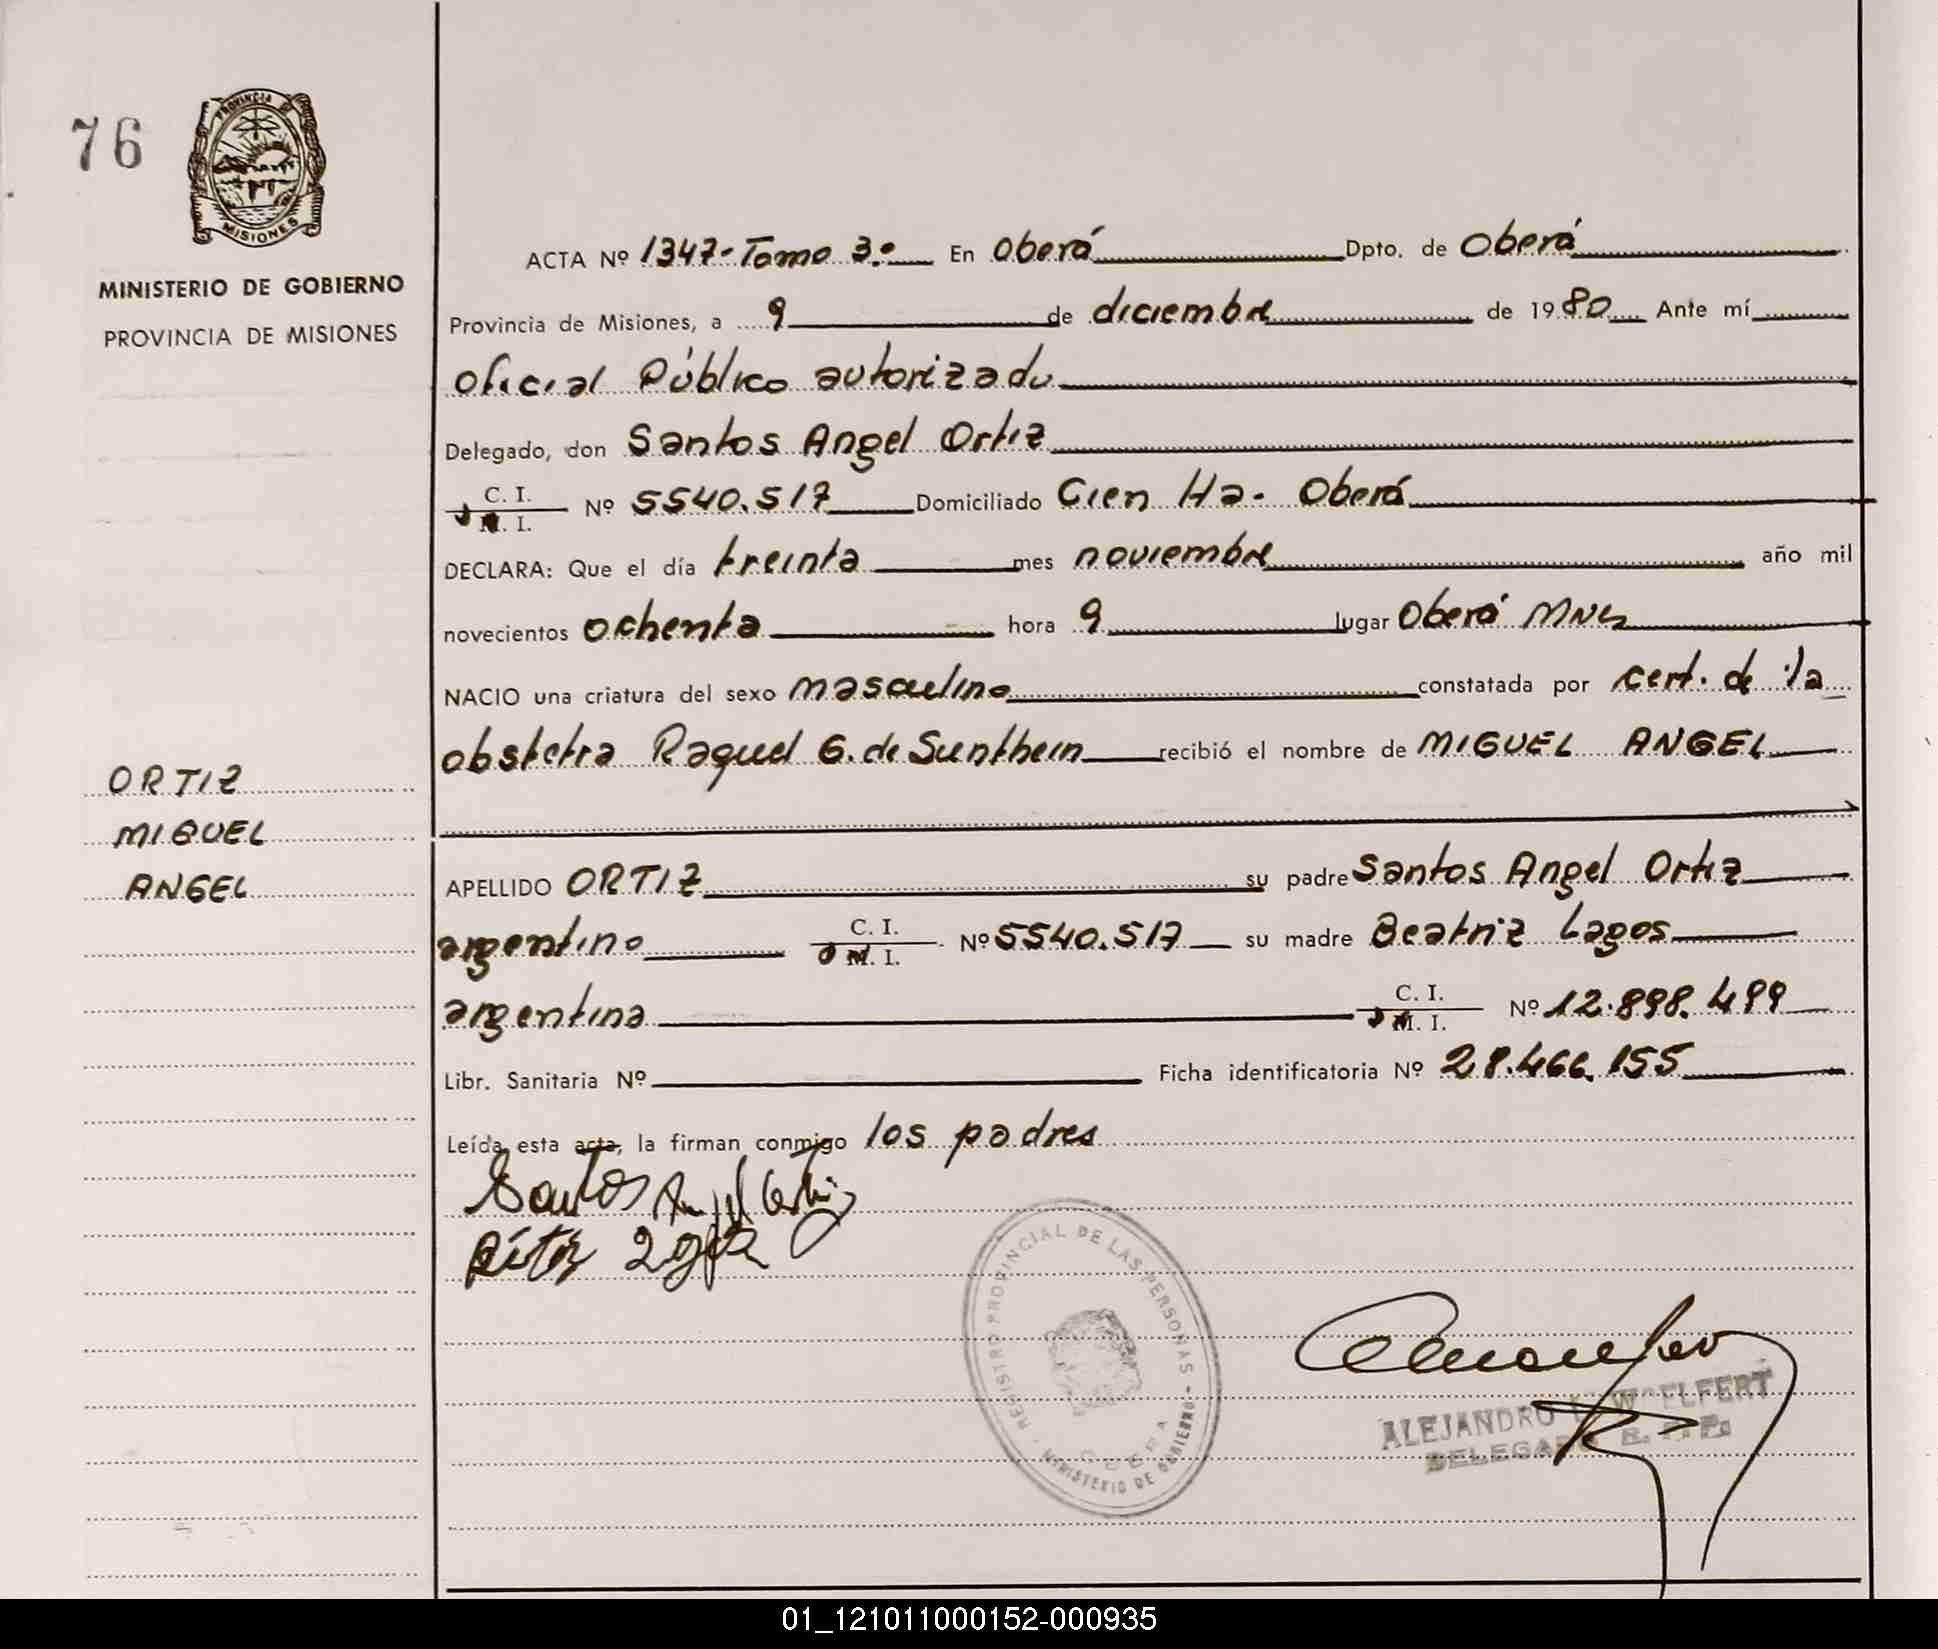 76
PROVINCIA DE
MISIONES
MINISTERIO DE GOBIERNO
PROVINCIA DE MISIONES
ORTIZ
MIGUEL
ANGEL
ACTA Nº 1347-Tomo 3.º En Oberá Dpto. de Oberá
Provincia de Misiones, a 9 de diciembre de 1980 Ante mí
Oficial Público autorizado
Delegado, don Santos Angel Ortiz
C. I.
M. I. Nº 5540.517 Domiciliado Cien Ha- Oberá
DECLARA: Que el día treinta mes noviembre año mil
novecientos ochenta hora 9 lugar Oberá Mnes
NACIO una criatura del sexo masculino constatada por cert. de la
obstetra Raquel G. de Sunthein recibió el nombre de MIGUEL ANGEL
APELLIDO ORTIZ su padre Santos Angel Ortiz
argentino C. I. M. I. Nº 5540.517 su madre Beatriz Lagos
argentina C. I. M. I. Nº 12.898.499
Libr. Sanitaria Nº Ficha identificatoria Nº 28.466.155
Leída esta acta, la firman conmigo los padres
Santos Angel Ortiz
REGISTRO PROVINCIAL DE LAS PERSONAS
MINISTERIO DE GOBIERNO
ALEJANDRO
DELEGADO R. P. P.
01_121011000152-000935